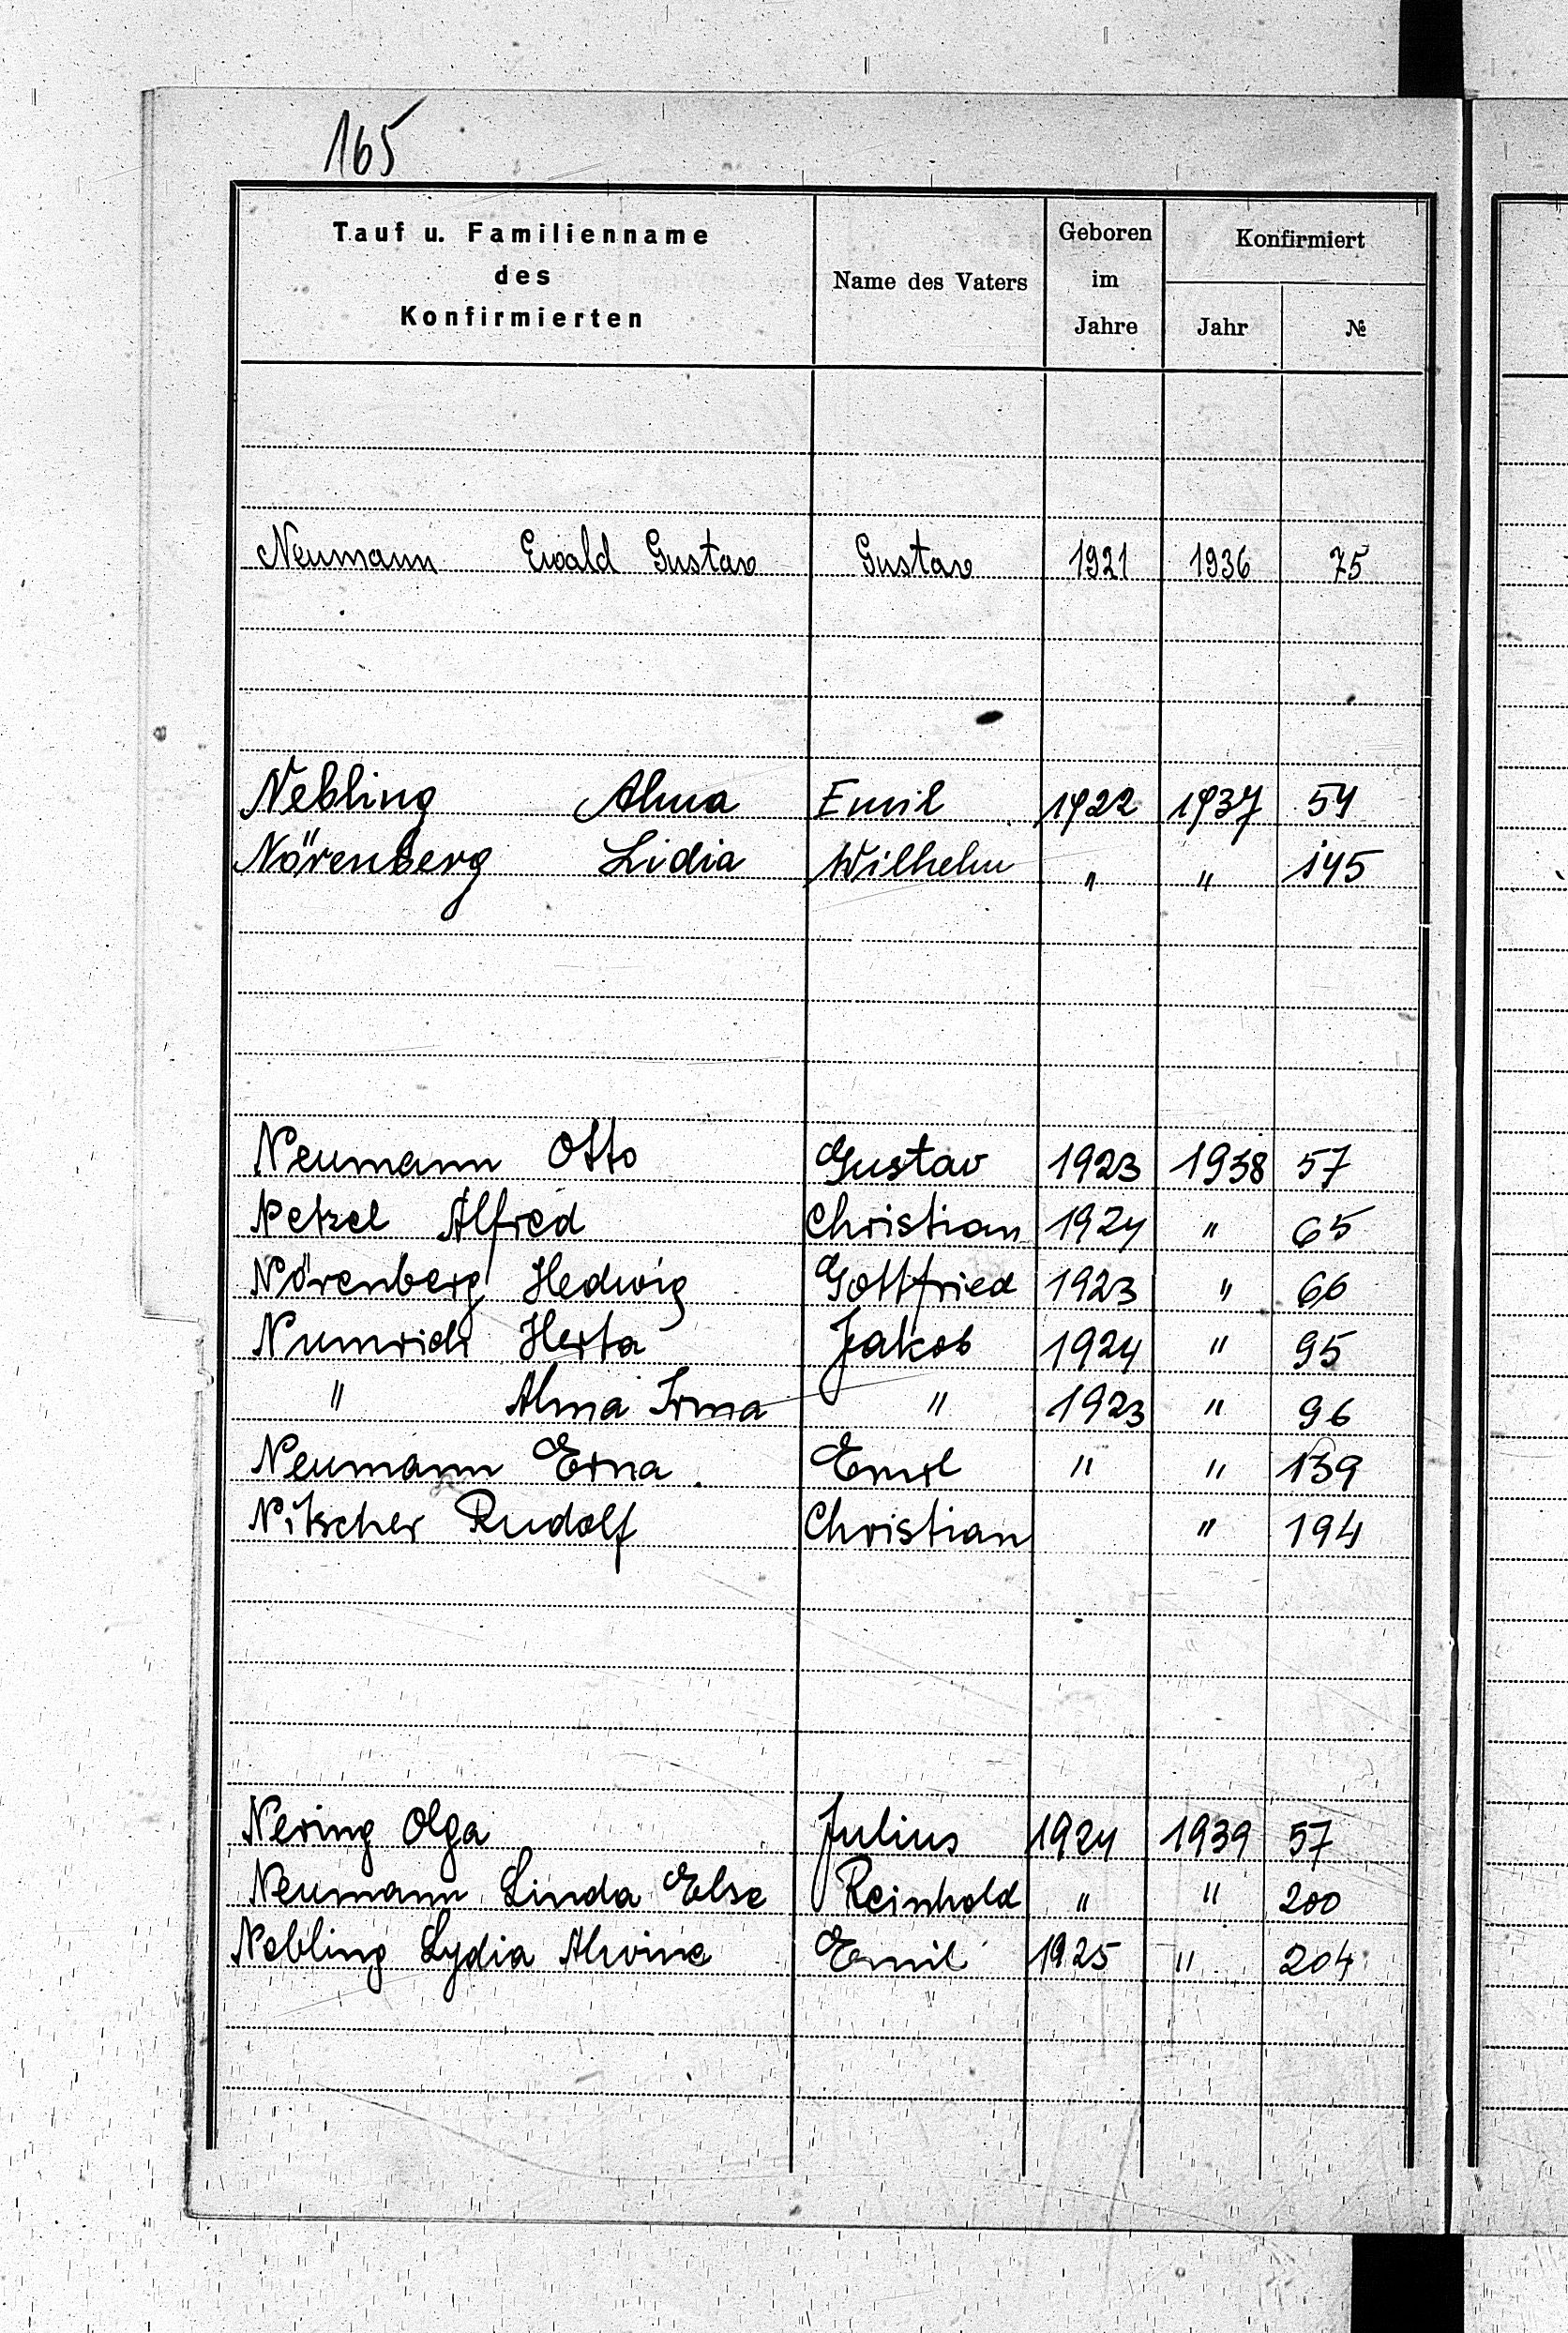 165
Tauf u. Familienname des Konfirmierten | Name des Vaters | Geboren im Jahre | Konfirmiert Jahr | №
Neumann Ewald Gustav Gustav 1921 1936 75
Nebling Alma Emil 1922 1937 54
Nörenberg Lidia Wilhelm " " 145
Neumann Otto Gustav 1923 1938 57
Netzel Alfred Christian 1924 " 65
Nörenberg Hedwig Gottfried 1923 " 66
Numrich Herta Jakob 1924 " 95
" Alma Irma " 1923 " 96
Neumann Erna Emil " " 139
Nitscher Rudolf Christian " 194
Nering Olga Julius 1924 1939 57
Neumann Linda Else Reinhold " " 200
Nebling Lydia Alwine Emil 1925 " 204